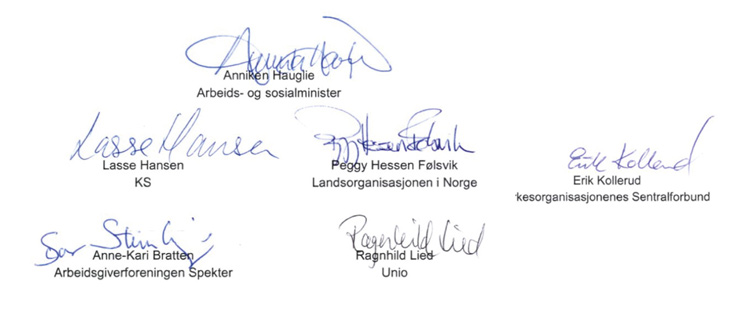 Anniken Hauglie
Arbeids- og sosialminister
Lasse Hansen
Lasse Hansen
KS
Peggy Hessen Følsvik
Landsorganisasjonen i Norge
Erik Kollerud
Erik Kollerud
kesorganisasjonenes Sentralforbund
Anne-Kari Bratten
Arbeidsgiverforeningen Spekter
Ragnhild Lied
Ragnhild Lied
Unio